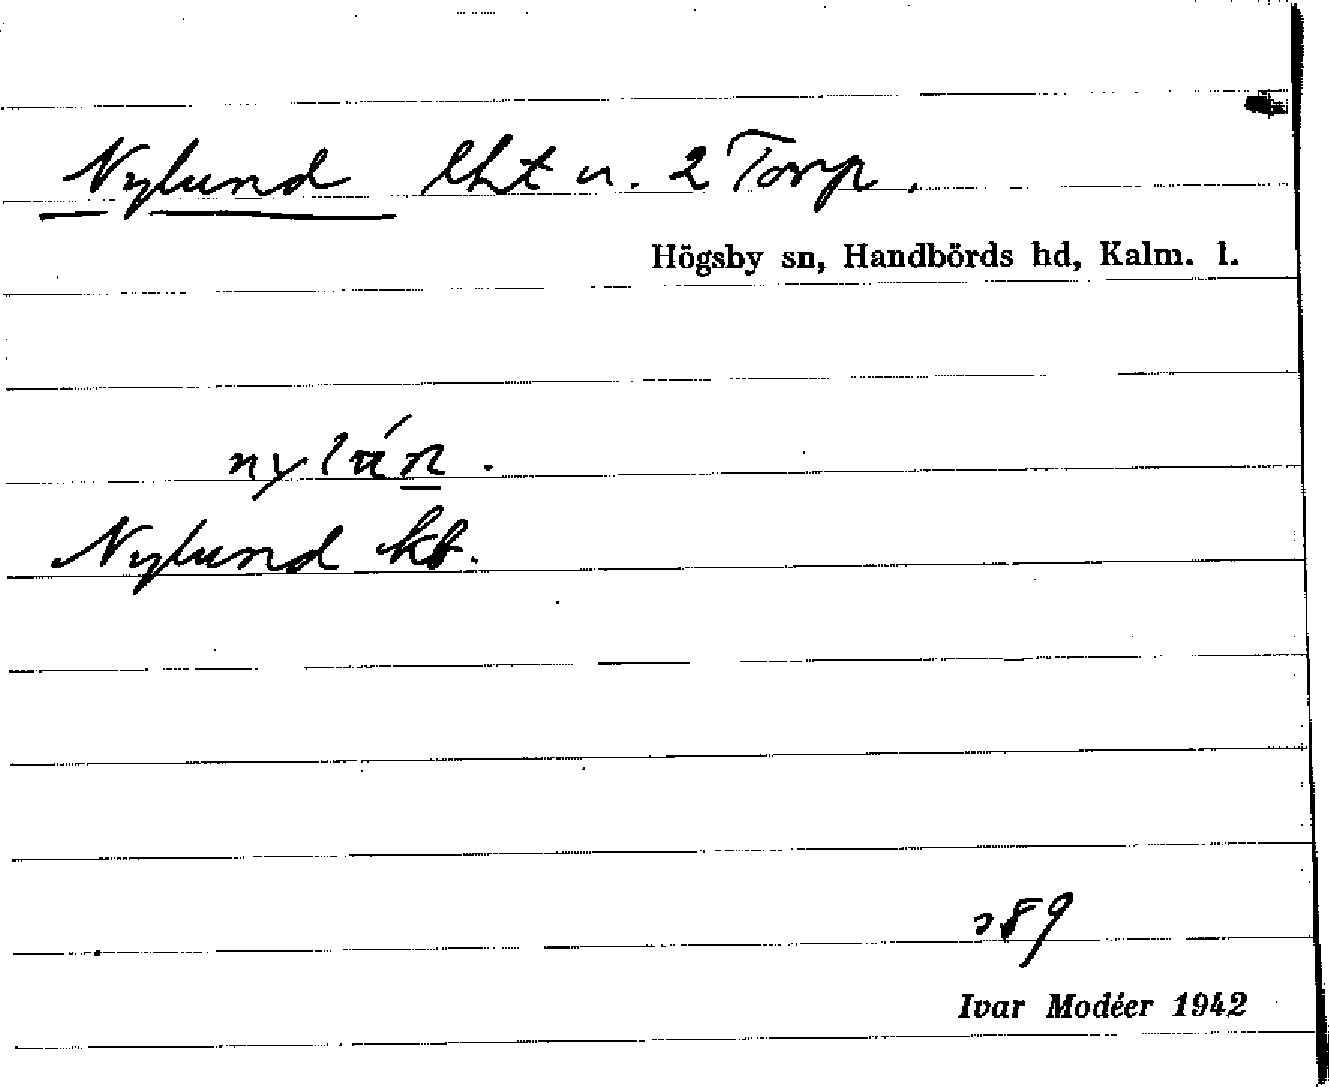 Nylund lht u. 2 Torp.
Högsby sn, Handbörds hd, Kalm. l.
Nylund kb.
389
Ivar Modéer 1942